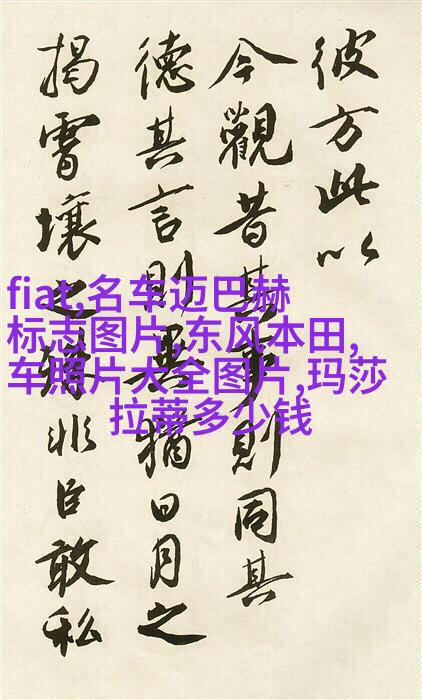 彼方此以
今觀昔其事則同其
德其言則異猶日月之
揭霄壤之殊非臣敢私
fiat,名车迈巴赫
标志图片,东风本田,
车照片大全图片,玛莎
拉蒂多少钱